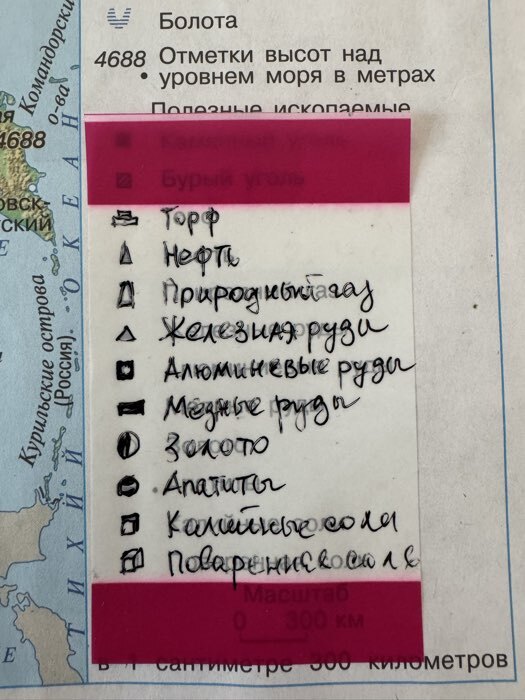 Болота
4688 Отметки высот над
уровнем моря в метрах
Полезные ископаемые
Каменный уголь
Бурый уголь
Торф
Нефть
Природный газ
Железная руды
Алюминевые руды
Медные руды
Золото
Апатиты
Калийные соли
Поваренная соль
Масштаб
0 300 км
в 1 сантиметре 300 километров
Командорские
о-ва
4688
Курильские острова
(Россия)
ТИХИЙ ОКЕАН